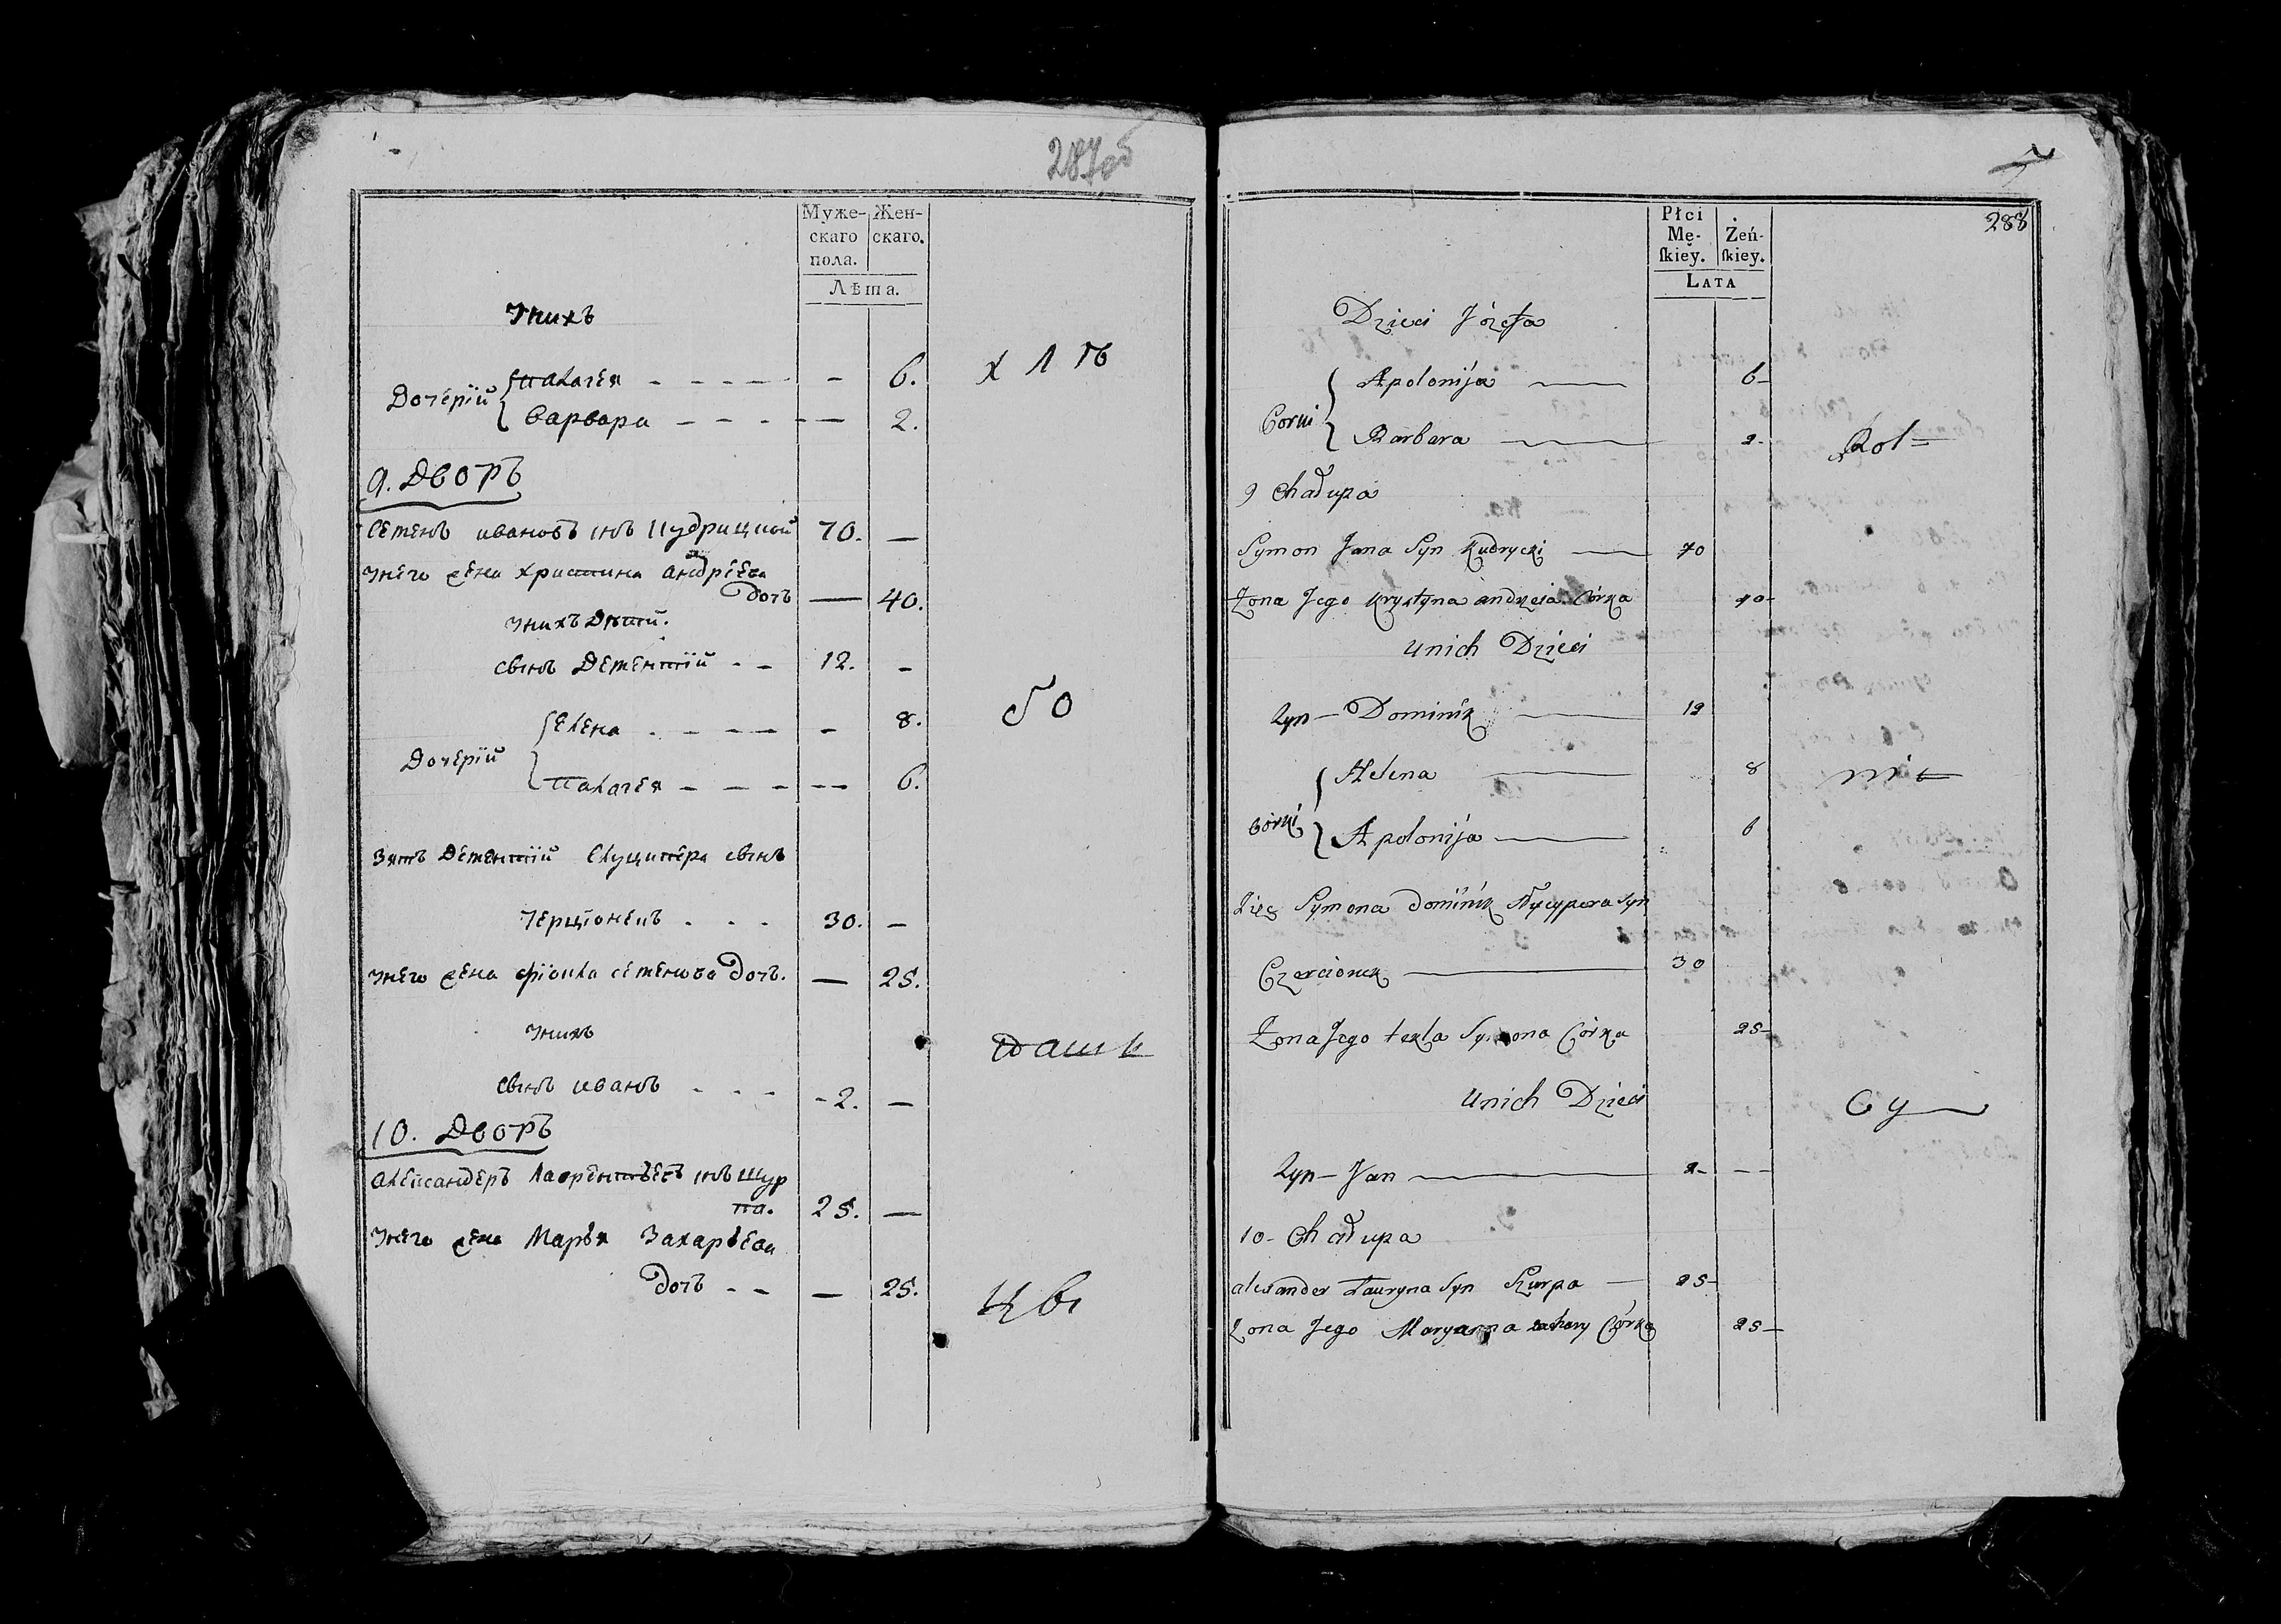 287об
Муже-
скаго
пола.
Жен-
скаго.
Лѣта.
Уних
Дочерїй
Палагея - - - - - 6.
Варвара - - - - - 2.
9. Дворъ
Семенъ Ивановъ снъ Кудрицкой 70. —
Унего жена Христина Андрѣева
дочь — 40.
Унихъ дѣти.
сынъ Дементїй - - 12. -
Дочерїй
Елена - - - - - 8.
Палагея - - - - - 6.
Зять Дементїй сынъ
Черцїонекъ . . . 30. —
Унего жена Фїокла Семенова дочь. — 25.
Унихъ
сынъ Иванъ . - - - 2. —
10. Дворъ
Александеръ Лаврентьевъ снъ Шур
па. 25. —
Унего жена Марья Захарьева
дочь - - — 25.
бо
288
Płci
Mę-
ſkiey.
Żeń-
ſkiey.
LATA
Dzieci Józefa
Corki
Apolonija — 6-
Barbara — 2-
9 Chałupa
Symon Jana Syn Kudrycki — 70
Żona Jego Krystyna andrzeia Córka 40-
unich Dzieci
Syn — Dominik — 12
Córki
Helena — 8
Apolonija — 6
Zięć Symona dominik Syn
Czercionek — 30
Żona Jego tekla Symona Córka 25-
unich Dzieci
Syn — Jan — 2- --
10- Chałupa
alexander Ławryna Syn Szurpa — 25-
Żona Jego Maryanna zachary Córka 25-